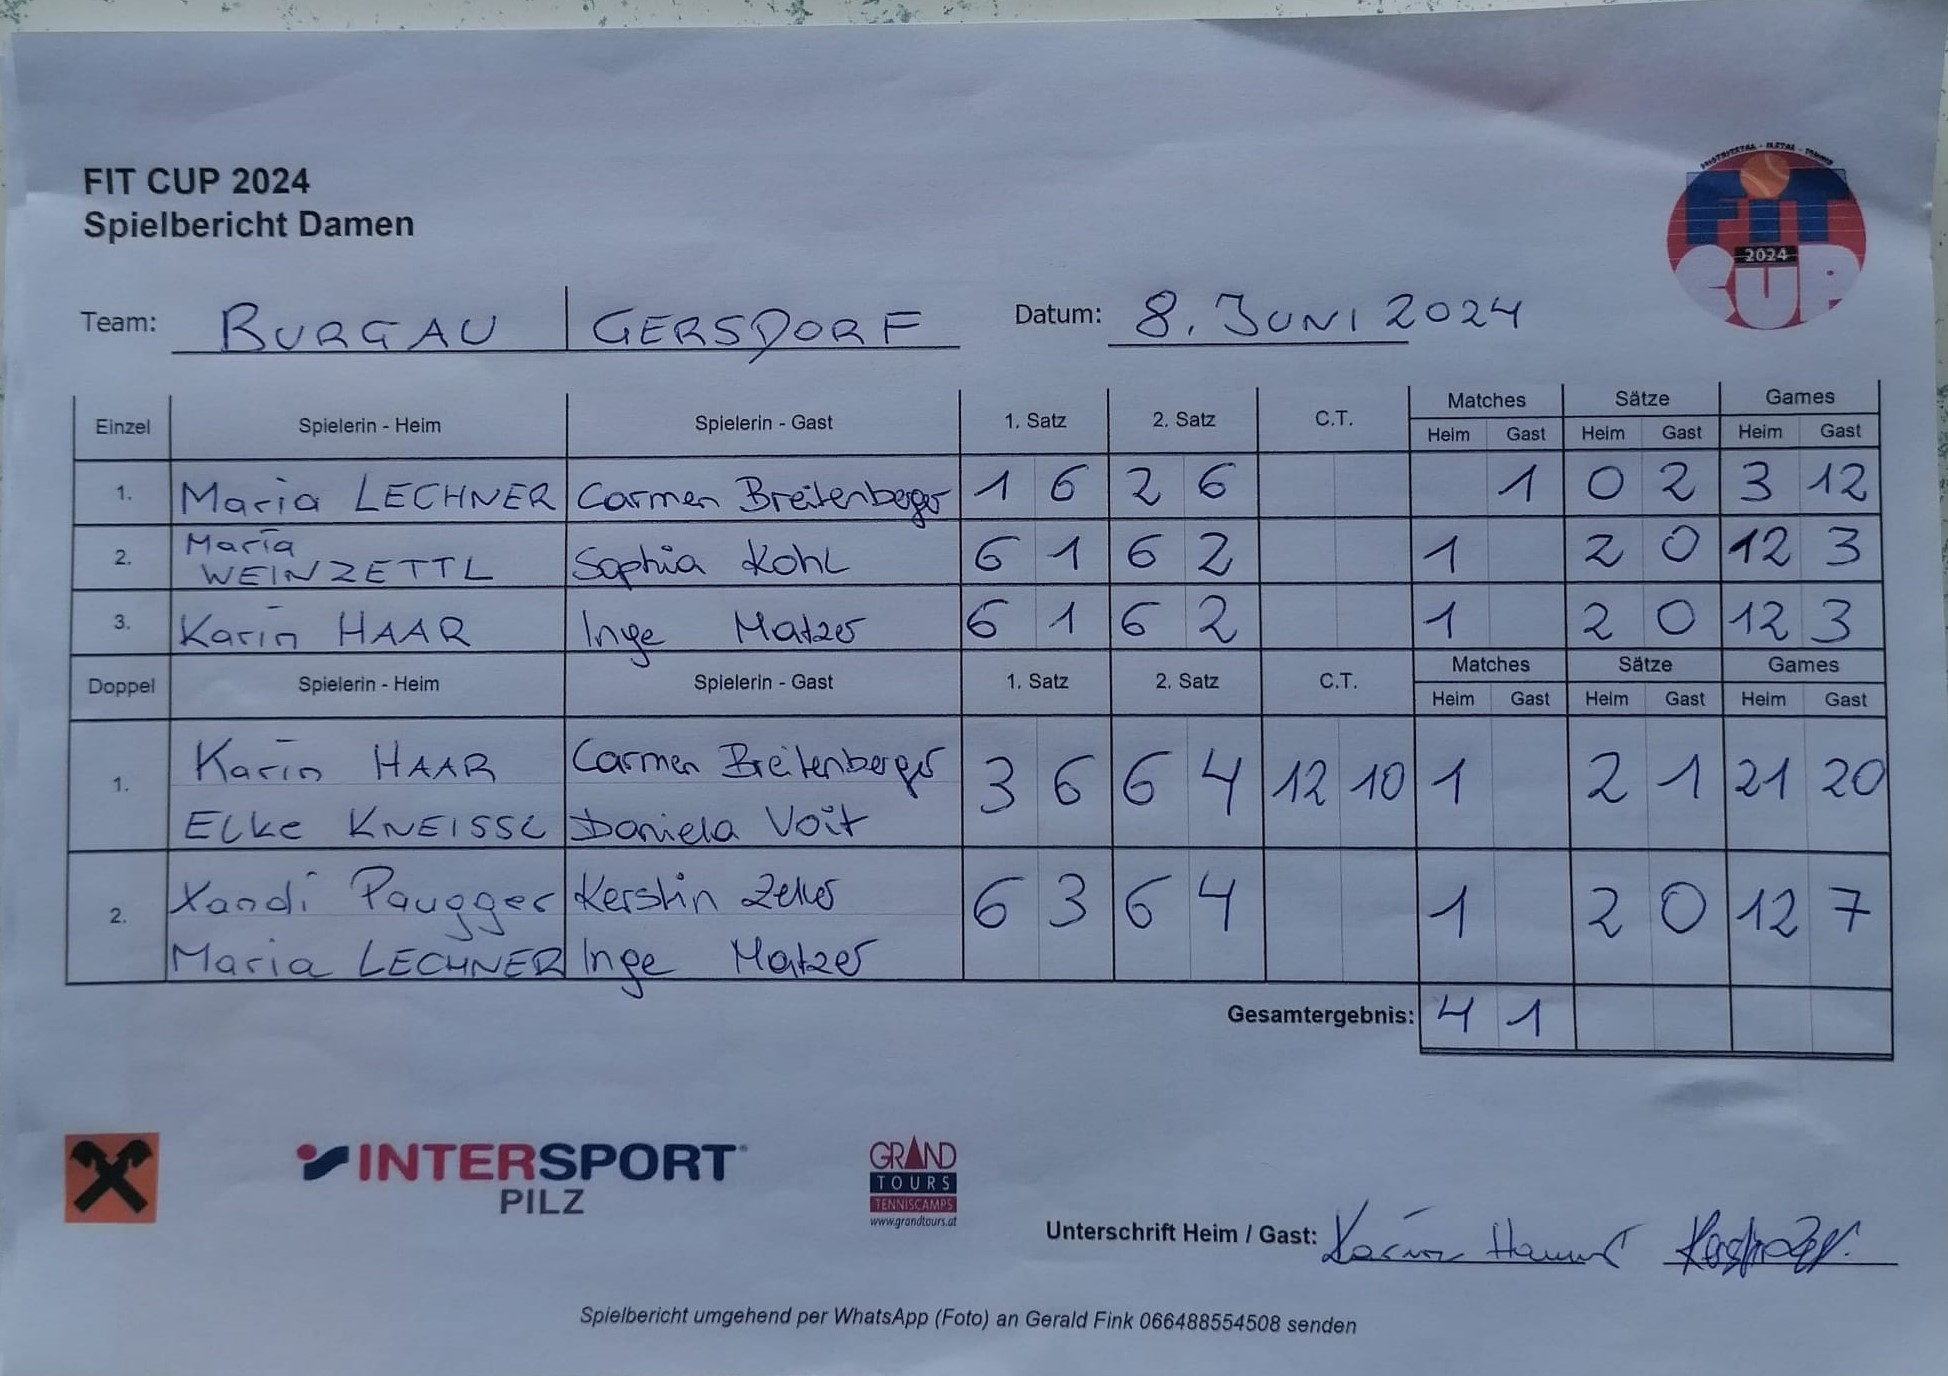 FIT CUP 2024
Spielbericht Damen
FIT
2024
CUP
Team: BURGAU | GERSDORF Datum: 8. JUNI 2024
Einzel Spielerin - Heim Spielerin - Gast 1. Satz 2. Satz C.T. Matches Sätze Games
Heim Gast Heim Gast Heim Gast
1. Maria LECHNER Carmen Breitenberger 1 6 2 6 1 0 2 3 12
2. Maria WEINZETTL Sophia Kohl 6 1 6 2 1 2 0 12 3
3. Karin HAAR Inge Matzer 6 1 6 2 1 2 0 12 3
Doppel Spielerin - Heim Spielerin - Gast 1. Satz 2. Satz C.T. Matches Sätze Games
Heim Gast Heim Gast Heim Gast
1. Karin HAAR Carmen Breitenberger 3 6 6 4 12 10 1 2 1 21 20
ELKE KNEISSL Daniela Voit
2. Xandi Paugger Kerstin 6 3 6 4 1 2 0 12 7
Maria LECHNER Inge Matzer
Gesamtergebnis: 4 1
INTERSPORT
PILZ
GRAND
TOURS
TENNISCAMPS
www.grandtours.at
Unterschrift Heim / Gast:
Spielbericht umgehend per WhatsApp (Foto) an Gerald Fink 066488554508 senden